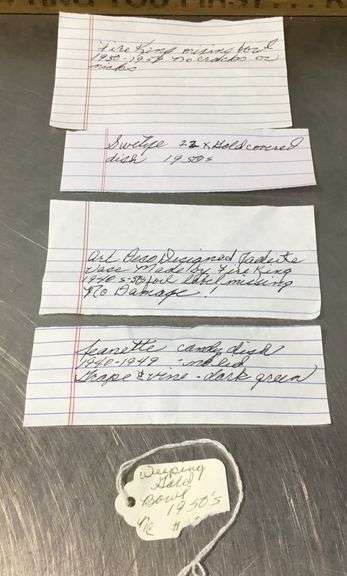 Fire King mixing bowl
1950-1959 No cracks or
nicks
22 K Gold covered
dish 1950's
Art Deco Designed Jadeite
Vase Made by Fire King
1940's-50's foil label missing
No Damage!
Jeanette candy dish
1940-1949 no lid
Grape & vine - dark green
Weeping
Gold
Bowl
1950's
N/C #